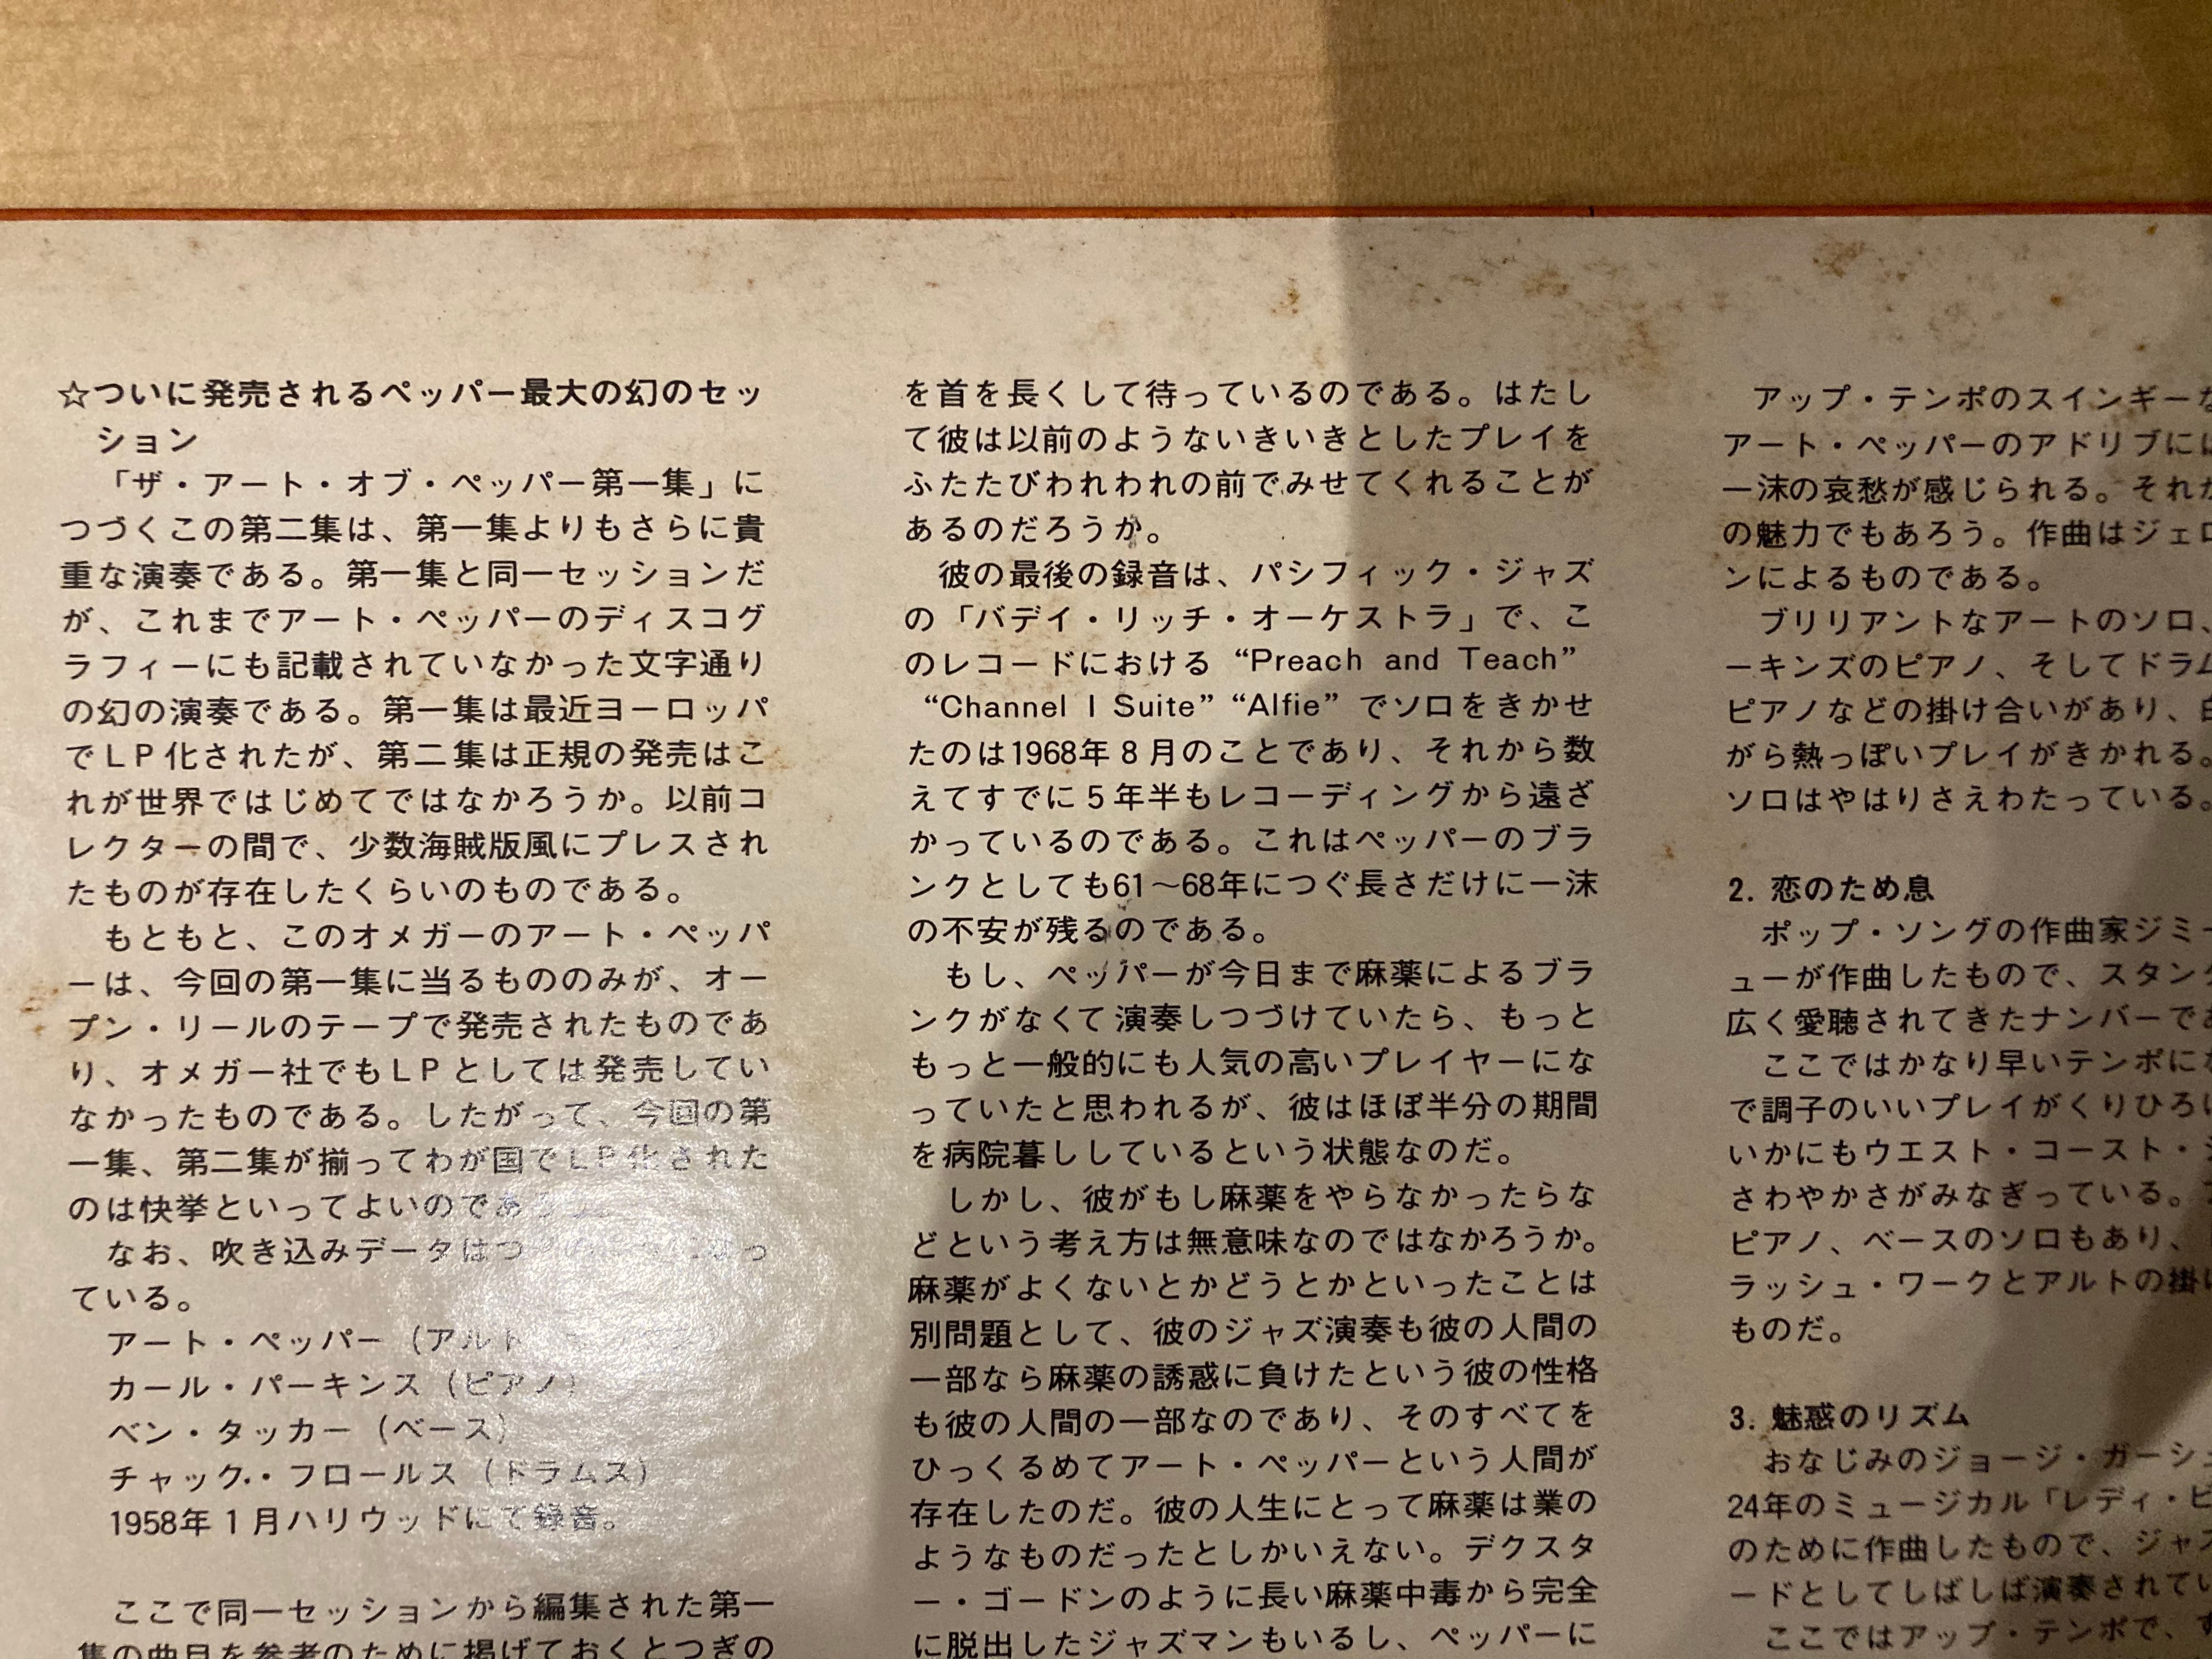 ☆ついに発売されるペッパー最大の幻のセッ
ション
「ザ・アート・オブ・ペッパー第一集」に
つづくこの第二集は、第一集よりもさらに貴
重な演奏である。第一集と同一セッションだ
が、これまでアート・ペッパーのディスコグ
ラフィーにも記載されていなかった文字通り
の幻の演奏である。第一集は最近ヨーロッパ
でLP化されたが、第二集は正規の発売はこ
れが世界ではじめてではなかろうか。以前コ
レクターの間で、少数海賊版風にプレスされ
たものが存在したくらいのものである。
もともと、このオメガーのアート・ペッパ
ーは、今回の第一集に当るもののみが、オー
プン・リールのテープで発売されたものであ
り、オメガー社でもLPとしては発売してい
なかったものである。したがって、今回の第
一集、第二集が揃ってわが国でLP化された
のは快挙といってよいのであろう
なお、吹き込みデータはつ
ている。
アート・ペッパー（アルト
カール・パーキンス（ピアノ）
ベン・タッカー（ベース）
チャック・フロールス（ドラムス）
1958年1月ハリウッドにて録音。
ここで同一セッションから編集された第一
集の曲目を参考のために掲げておくとつぎの
を首を長くして待っているのである。はたし
て彼は以前のようないきいきとしたプレイを
ふたたびわれわれの前でみせてくれることが
あるのだろうか。
彼の最後の録音は、パシフィック・ジャズ
の「バデイ・リッチ・オーケストラ」で、こ
のレコードにおける “Preach and Teach”
“Channel I Suite” “Alfie” でソロをきかせ
たのは1968年8月のことであり、それから数
えてすでに5年半もレコーディングから遠ざ
かっているのである。これはペッパーのブラ
ンクとしても61〜68年につぐ長さだけに一沫
の不安が残るのである。
もし、ペッパーが今日まで麻薬によるブラ
ンクがなくて演奏しつづけていたら、もっと
もっと一般的にも人気の高いプレイヤーにな
っていたと思われるが、彼はほぼ半分の期間
を病院暮ししているという状態なのだ。
しかし、彼がもし麻薬をやらなかったらな
どという考え方は無意味なのではなかろうか。
麻薬がよくないとかどうとかといったことは
別問題として、彼のジャズ演奏も彼の人間の
一部なら麻薬の誘惑に負けたという彼の性格
も彼の人間の一部なのであり、そのすべてを
ひっくるめてアート・ペッパーという人間が
存在したのだ。彼の人生にとって麻薬は業の
ようなものだったとしかいえない。デクスタ
ー・ゴードンのように長い麻薬中毒から完全
に脱出したジャズマンもいるし、ペッパーに
アップ・テンポのスインギーな
アート・ペッパーのアドリブには
一沫の哀愁が感じられる。それが
の魅力でもあろう。作曲はジェロ
ンによるものである。
ブリリアントなアートのソロ、
ーキンズのピアノ、そしてドラム
ピアノなどの掛け合いがあり、
がら熱っぽいプレイがきかれる。
ソロはやはりさえわたっている。
2. 恋のため息
ポップ・ソングの作曲家ジミー
ューが作曲したもので、スタンダ
広く愛聴されてきたナンバーであ
ここではかなり早いテンポにな
で調子のいいプレイがくりひろげ
いかにもウエスト・コースト・ジ
さわやかさがみなぎっている。
ピアノ、ベースのソロもあり、
ラッシュ・ワークとアルトの掛け
ものだ。
3. 魅惑のリズム
おなじみのジョージ・ガーシュ
24年のミュージカル「レディ・ビ
のために作曲したもので、ジャズ
ードとしてしばしば演奏されてい
ここではアップ・テンポで、す